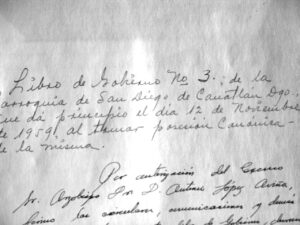 Libro de Gobierno No 3, de la
arroquia de San Diego de Canatlán Dgo.
ue da principio el día 12 de Noviembre
de 1959, al tomar posesión Canónica-
de la misma.
Por autorización del Excmo
Sr. Arzobispo Dr. D. Antonio López Aviña,
las circulares, comunicaciones y demás
de Gobierno